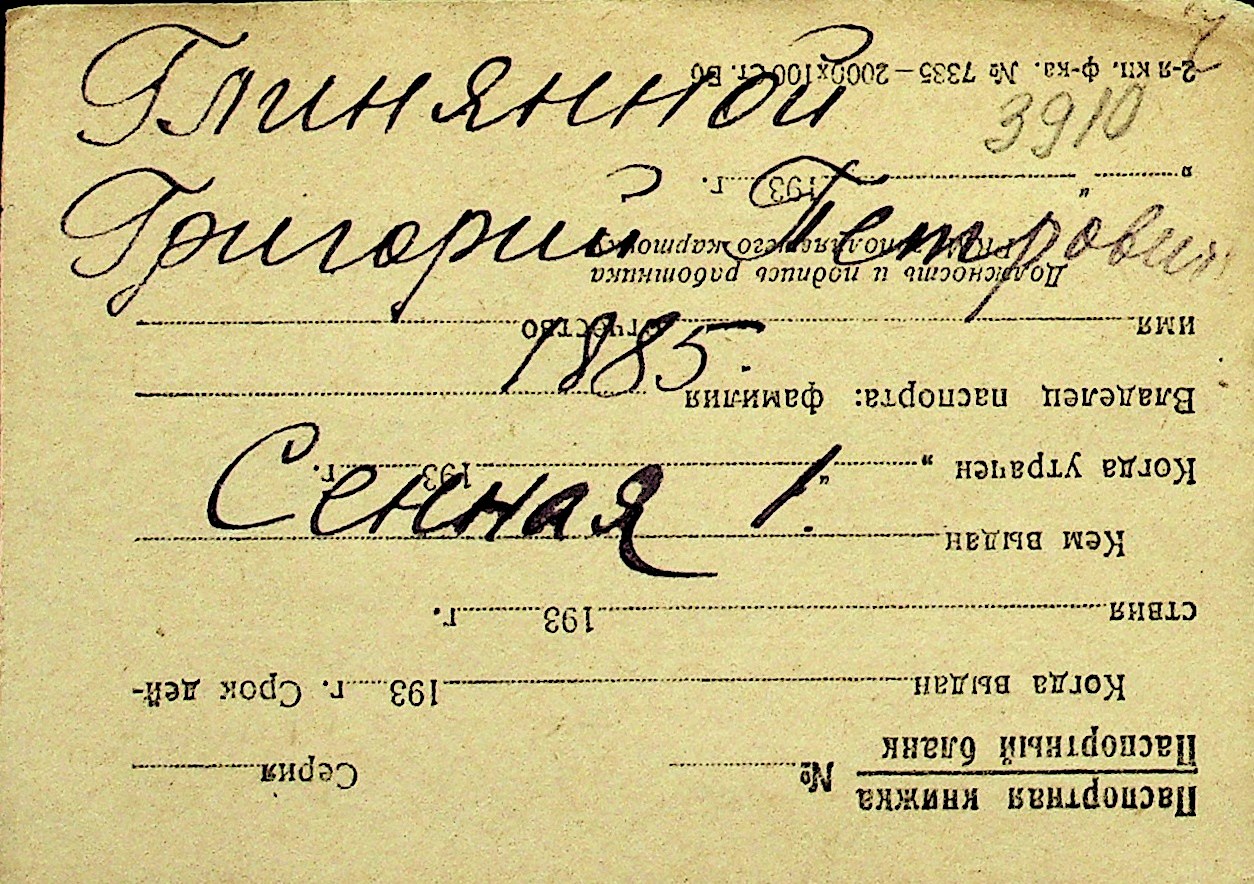 Глинянной
3910
Григорий Петрович
1885.
Сенная 1.
Паспортная книжка
Паспортный бланк
№ Серия
Когда выдан 193 г. Срок дей-
ствия 193 г.
Кем выдан
Когда утрачен „ “ 193 г.
Владелец паспорта: фамилия
имя отчество
Должность и подпись работника
„ “ 193 г.
2-я кп. ф-ка. № 7335—2000х100 Ст. Вб